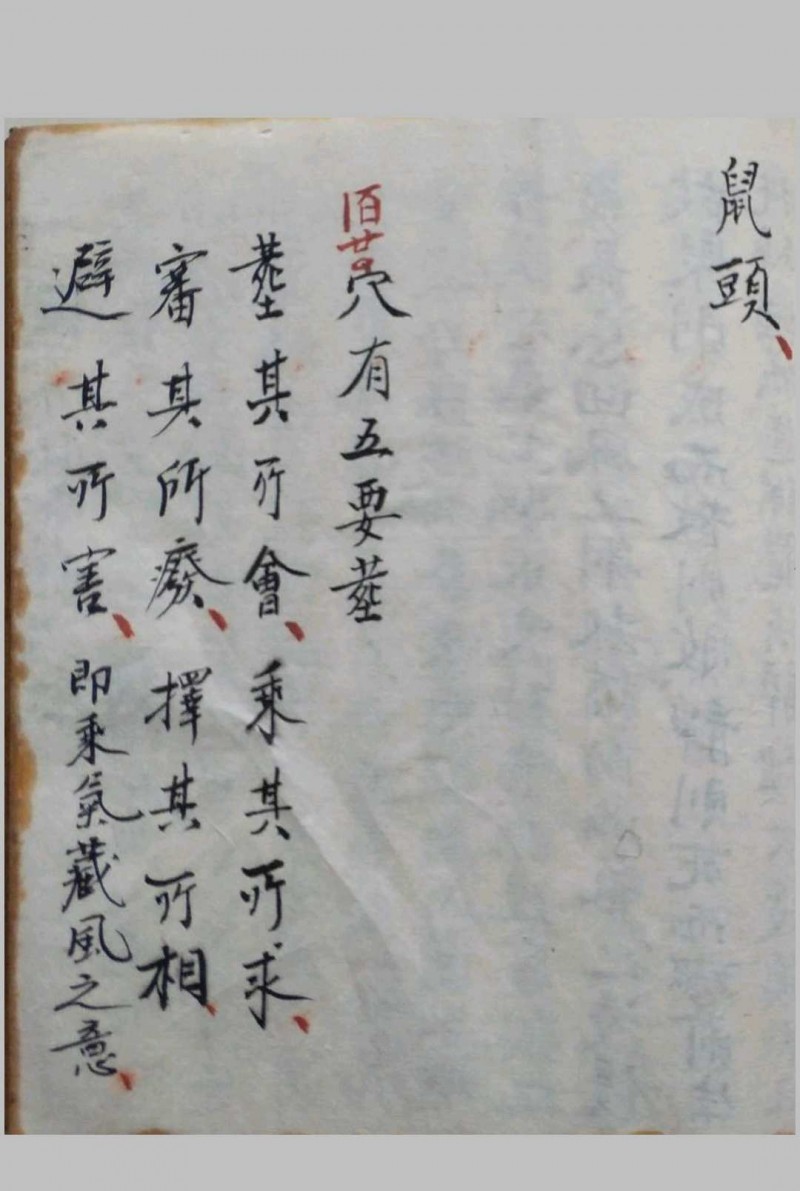 鼠頭、
佰廿穴有五要塟
塟其所會、乘其所求、
審其所廢、擇其所相、
避其所害、即乘氣藏風之意、